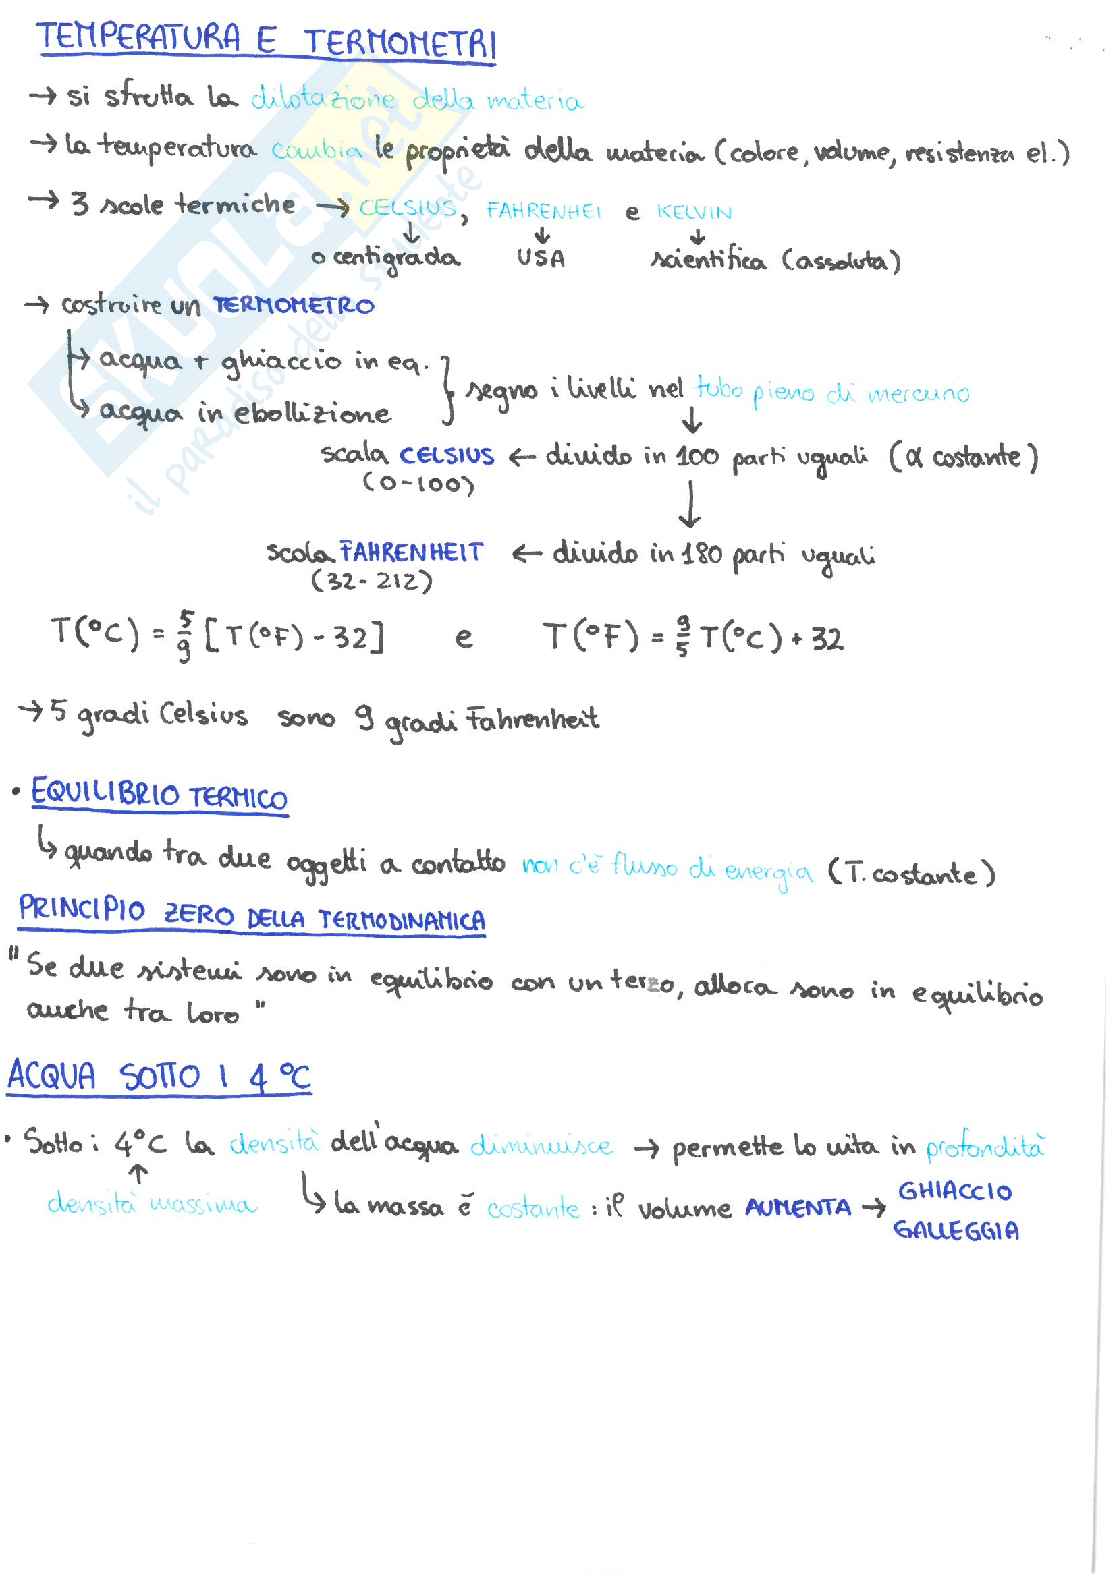 TEMPERATURA E TERMOMETRI
→ si sfrutta la dilatazione della materia
→ la temperatura cambia le proprietà della materia (colore, volume, resistenza el.)
→ 3 scale termiche → CELSIUS, FAHRENHEI e KELVIN
↓ ↓ ↓
o centigrada USA scientifica (assoluta)
→ costruire un TERMOMETRO
→ acqua + ghiaccio in eq.
→ acqua in ebollizione } segno i livelli nel tubo pieno di mercurio
↓
scala CELSIUS ← divido in 100 parti uguali (α costante)
(0-100)
↓
scala FAHRENHEIT ← divido in 180 parti uguali
(32-212)
T(°C) = 5/9 [T(°F) - 32] e T(°F) = 9/5 T(°C) + 32
→ 5 gradi Celsius sono 9 gradi Fahrenheit
• EQUILIBRIO TERMICO
↳ quando tra due oggetti a contatto non c'è flusso di energia (T. costante)
PRINCIPIO ZERO DELLA TERMODINAMICA
"Se due sistemi sono in equilibrio con un terzo, allora sono in equilibrio
anche tra loro"
ACQUA SOTTO I 4 °C
• Sotto i 4°C la densità dell'acqua diminuisce → permette la vita in profondità
↑
densità massima ↳ la massa è costante : il volume AUMENTA → GHIACCIO
GALLEGGIA
SKUOLA.net
il paradiso dello studente